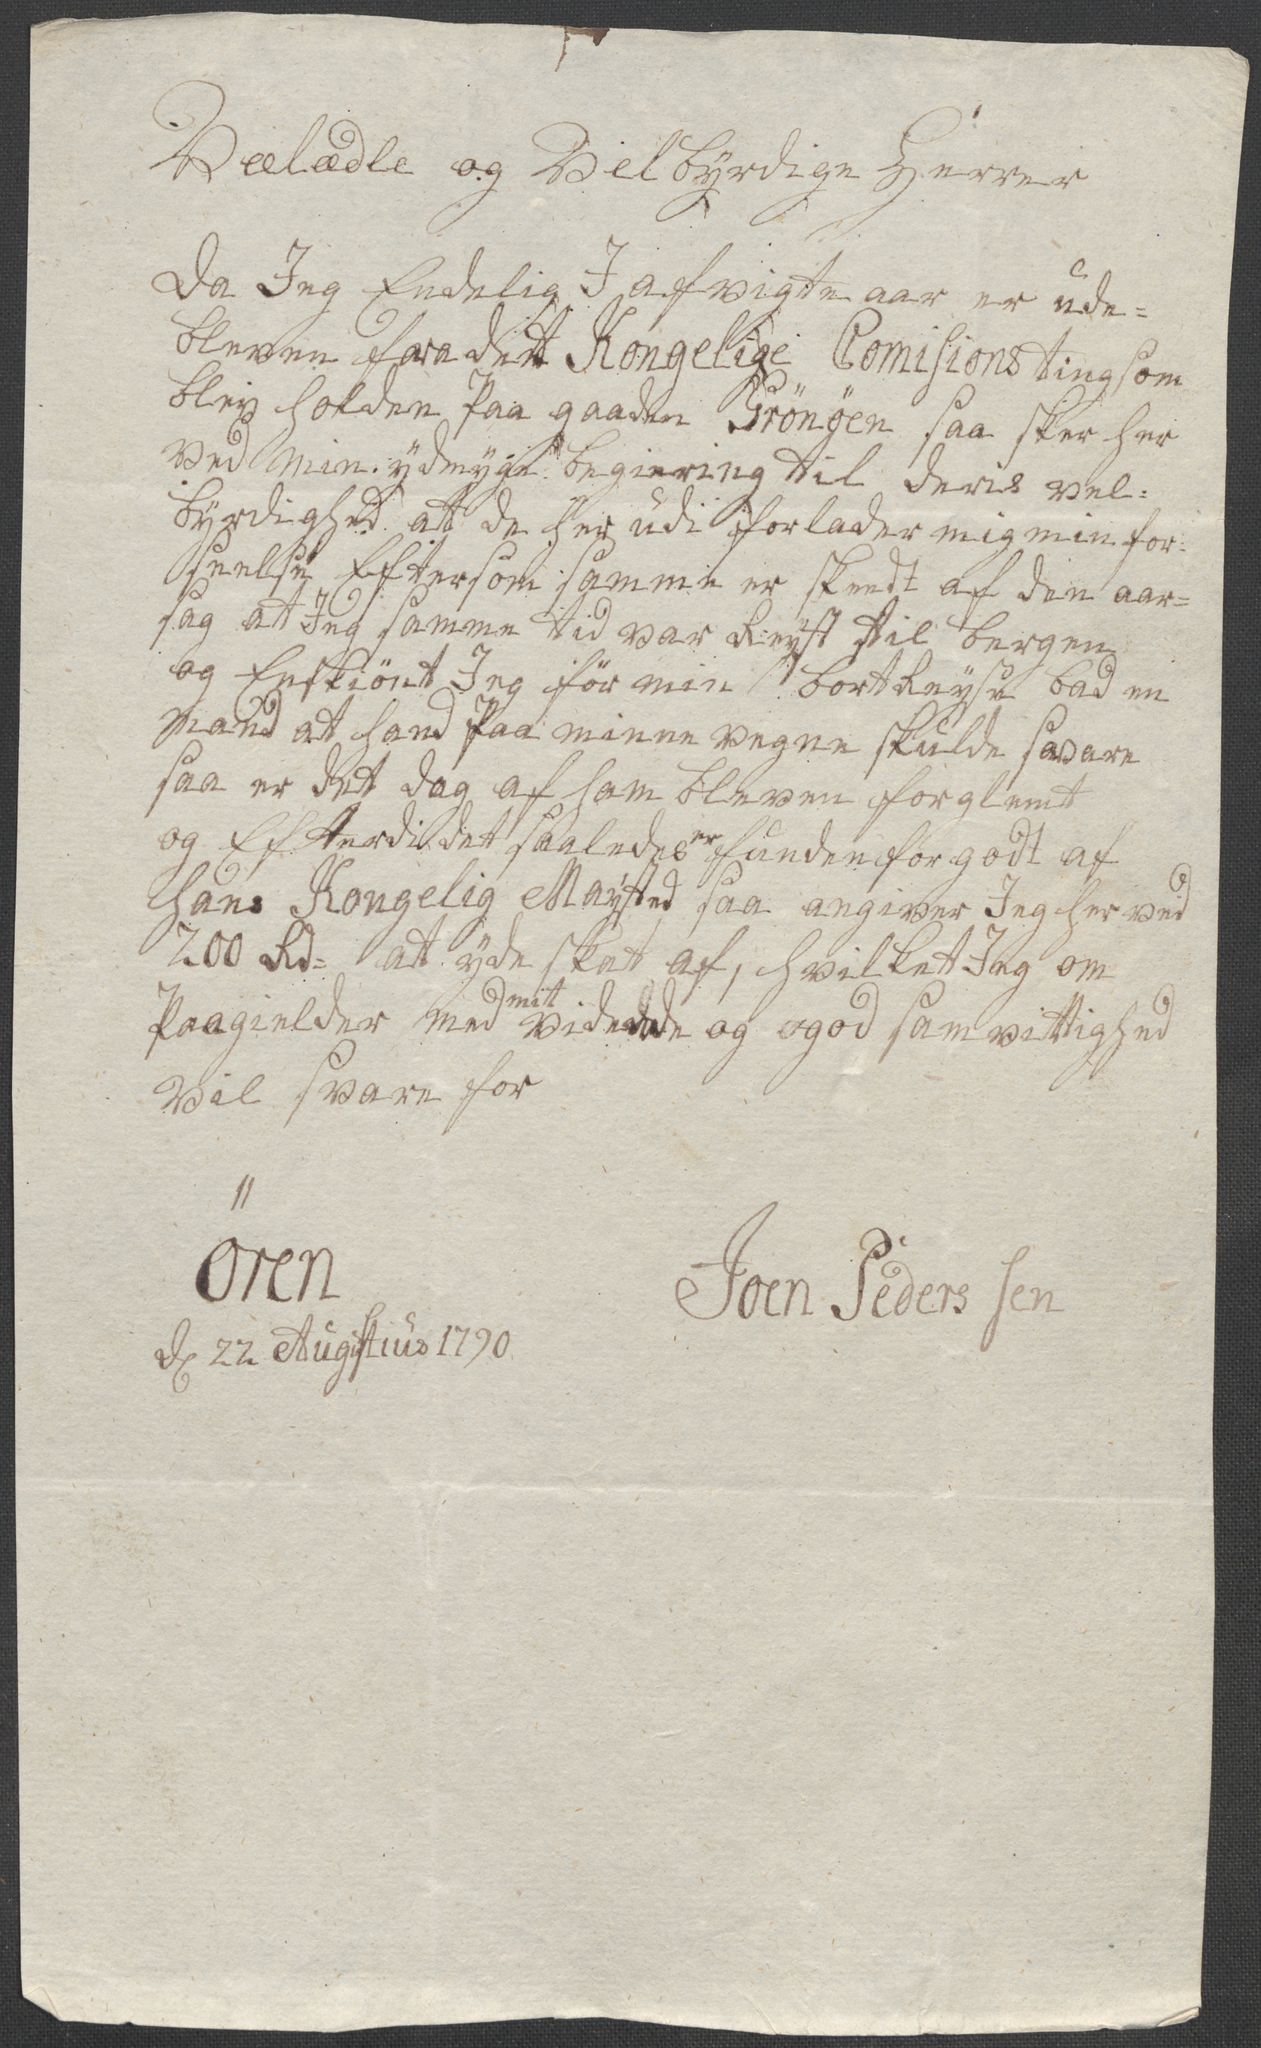 Veelædle og Velbÿrdige Herrer
Da Jeg Endelig J afvigte aar er ude=
bleven fra dett Kongelige Comisions ting som
blev holden Paa gaaden Gröngen saa sker her
ved min ydmyge begiering til deris vel=
bÿrdighed at de her udi forlader mig min for=
seelse Eftersom samme er skeedt af den aar=
sag at Jeg samme tid var Reÿst til bergen
og Enskiönt Jeg för min bortReÿse bad en
Mand at hand Paa minne vegne skulde svare
saa er det dog af ham bleven forglemt
og Efterdi det saaledes er funden for godt af
Hans Kongelig Maÿsted saa angiver Jeg her ved
200 Rd= at ÿde skat af, hvilket Jeg om
Paagielder med mit vidende og ogod samvittighed
vil svare for
Ören
Joen Peders sen
d 22 Augustius 1790